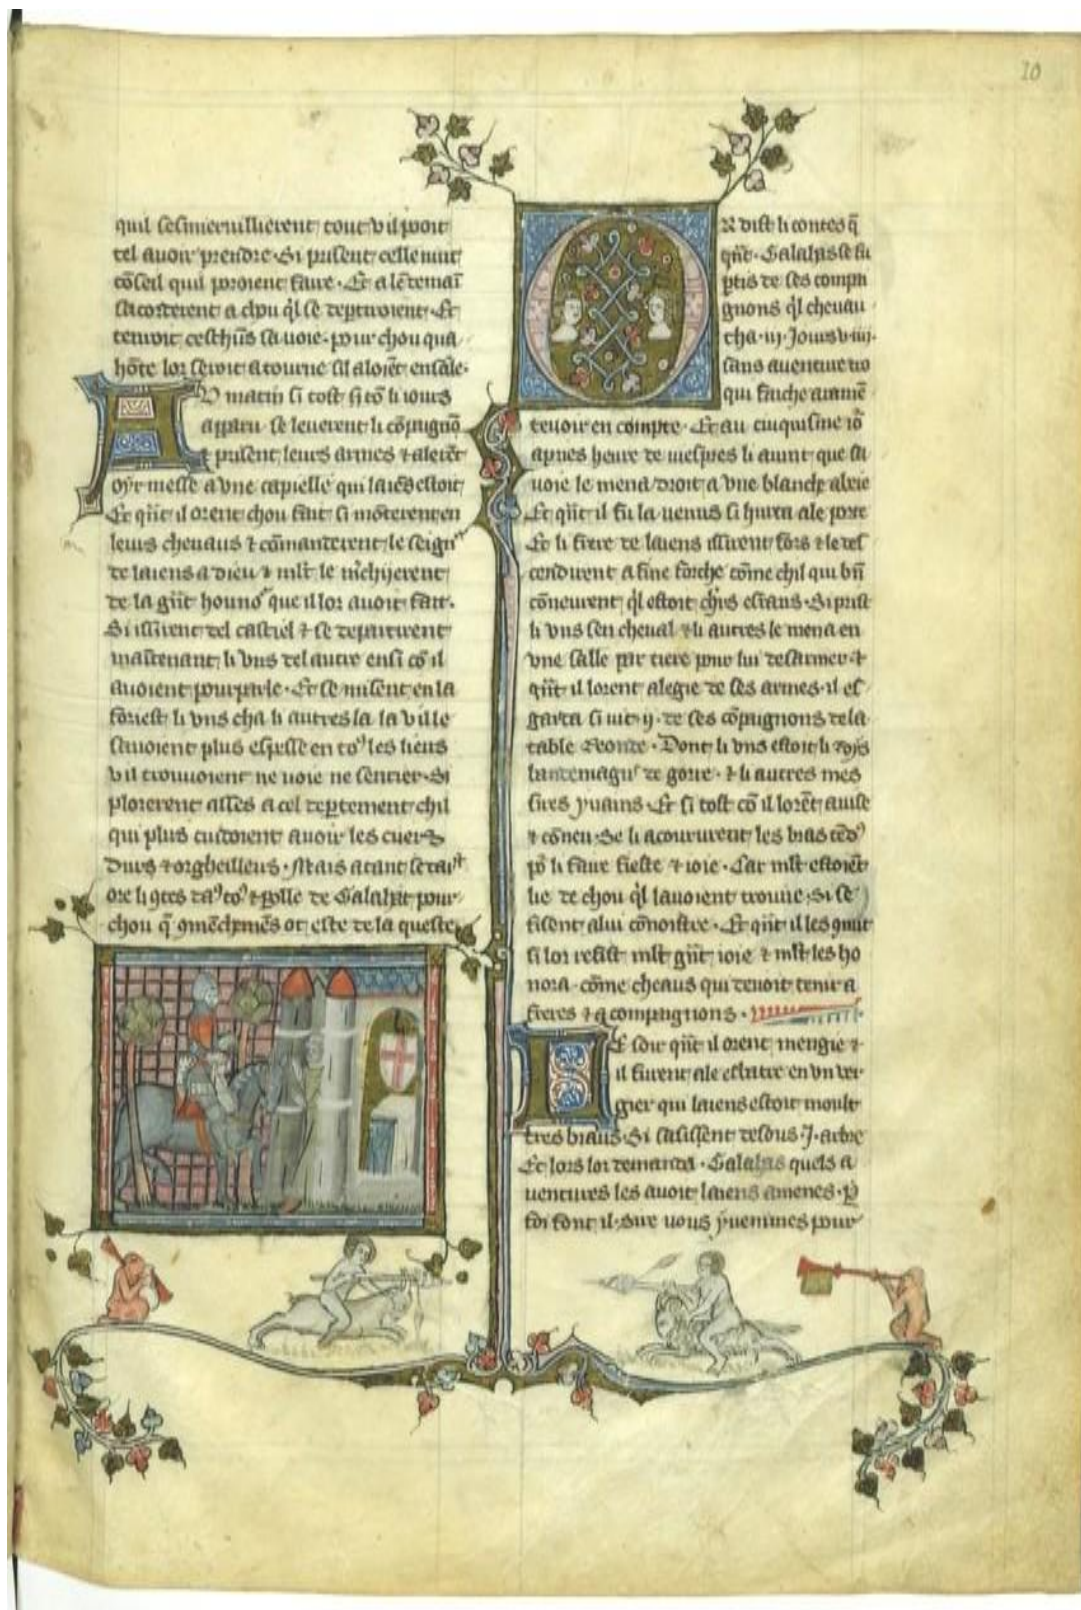 10
quil sesmeruillierent tout v il pooit
tel auoir prendre. Si prisent celle nuit
cõseil quil poroient faire. Et a lẽdemaĩ
sacorderent a chou ql se deptiroient. Et
tenroit cescũs sa uoie. pour chou qua
hõte lor seroit atourne sil aloiẽt ensãle.
AU matin si tost si cõ li iours
apparu se leuerent li cõpagnõ
⁊ prisent leurs armes ⁊ alerẽt
oyr messe a vne capielle qui laiẽs estoit
Et qñt il orent chou fait si mõterent en
leurs cheuaus ⁊ cõmanderent le seignʳ
de laiens a dieu ⁊ mlt le mchijerent
de la gñt hounoʳ que il lor auoit fait.
Si issirent del castiel ⁊ se departirent
maintenant li vns del autre ensi cõ il
auoient pourparle. Et se misent en la
foriest li vns cha li autres la la v il le
sauoient plus espesse en toˀ les lieus
v il trouuoient ne uoie ne sentier. Si
plorerent asses a cel deptement chil
qui plus cuidoient auoir les cuers
durs ⁊ orgheilleus. Mais atant se taist
ore li ꝯtes daˀ toˀ ⁊ polle de Galahat pour
chou q̃ ꝯmẽchemẽs ot este de la queste
OR dist li contes q̃
qñt. Galahas se fu
ptis de ses compa
gnons ql cheuau
cha .iij. Jours v .iiij.
sans auenture tro
qui faiche a ramẽ
teuoir en compte. Et au cinquisme iõ
apries heure de uiespres li auint que sa
uoie le mena droit a vne blanche abeie
Et qñt il fu la uenus si hurta a le porte
Et li frere de laiens issirent fors ⁊ le des
cendirent a fine forche cõme chil qui bñ
cõneurent ql estoit chrs errans. Si prist
li vns sen cheual ⁊ li autres le mena en
vne salle par tiere pour lui desarmer ⁊
qñt il lorent alegie de ses armes. il es
garda si uit .ij. de ses cõpagnons de la
table reonde. Dont li vns estoit li rois
bandemagus de gorre. ⁊ li autres mes
sires yuains. Et si tost cõ il lorẽt auise
⁊ cõneu. Se li acoururent les bras tẽdˀ
pʳ li faire fieste ⁊ ioie. Car mlt estoiẽt
lie de chou ql lauoient trouue. Si se
fisent a lui cõnoistre. Et qñt il les ꝯnut
si lor refist mlt gñt ioie ⁊ mlt les ho
nora. cõme cheaus qui deuoit tenir a
freres ⁊ a compaignons.
LE soir qñt il orent mengie ⁊
il furent ale esbatre en vn ver
gier qui laiens estoit moult
tres biaus. Si sasissent desous .J. arbre
Et lors lor demanda. Galahas quels a
uentures les auoit laiens amenes. Par
foi font il. Sire nous y uenimes pour